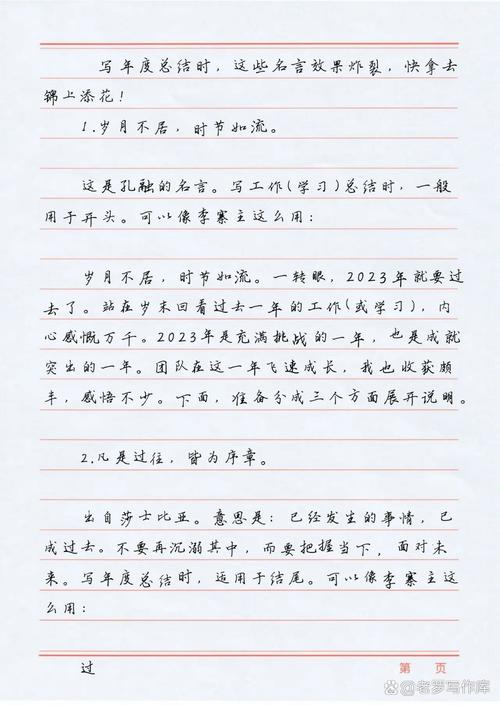 写年度总结时，这些名言效果炸裂，快拿去
锦上添花！
1.岁月不居，时节如流。
这是孔融的名言。写工作(学习)总结时，一般
用于开头。可以像李寨主这么用：
岁月不居，时节如流。一转眼，2023年就要过
去了。站在岁末回看过去一年的工作(或学习)，内
心感慨万千。2023年是充满挑战的一年，也是成就
突出的一年。团队在这一年飞速成长，我也收获颇
丰，感悟不少。下面，准备分成三个方面展开说明。
2.凡是过往，皆为序章。
出自莎士比亚。意思是：已经发生的事情，已
成过去。不要再沉溺其中，而要把握当下，面对未
来。写年度总结时，适用于结尾。可以像李寨主这
么用：
过
第 页
@老罗写作库